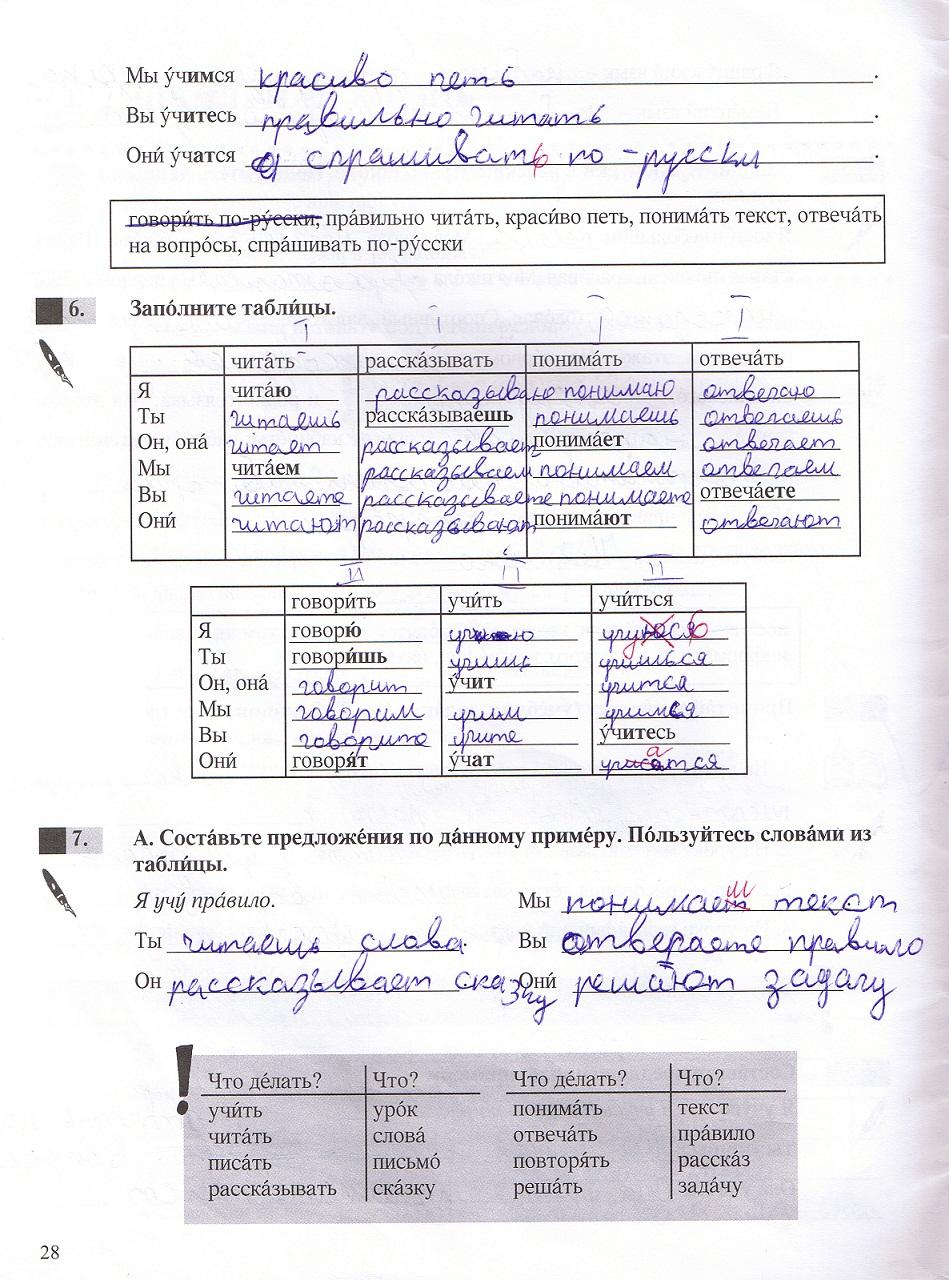 Мы у́чимся красиво петь.
Вы у́читесь правильно читать.
Они́ у́чатся спрашивать по-русски.
говори́ть по-ру́сски, пра́вильно чита́ть, краси́во петь, понима́ть текст, отвеча́ть
на вопро́сы, спра́шивать по-ру́сски
6. Запо́лните табли́цы.
I I I I
чита́ть расска́зывать понима́ть отвеча́ть
Я чита́ю рассказываю понимаю отвечаю
Ты читаешь расска́зываешь понимаешь отвечаешь
Он, она́ читает рассказывает понима́ет отвечает
Мы чита́ем рассказываем понимаем отвечаем
Вы читаете рассказываете понимаете отвеча́ете
Они́ читают рассказывают понима́ют отвечают
II II II
говори́ть учи́ть учи́ться
Я говорю́
Ты говори́шь учишь учишься
Он, она́ говорит у́чит учится
Мы говорим учим учимся
Вы говорите учите у́читесь
Они́ говоря́т у́чат учатся
7. А. Соста́вьте предложе́ния по да́нному приме́ру. По́льзуйтесь слова́ми из
табли́цы.
Я учу́ пра́вило. Мы понимаем текст
Ты читаешь слова. Вы отвечаете правило
Он рассказывает сказку Они́ решают задачу
! Что де́лать? Что? Что де́лать? Что?
учи́ть уро́к понима́ть текст
чита́ть слова́ отвеча́ть пра́вило
писа́ть письмо́ повторя́ть расска́з
расска́зывать ска́зку реша́ть зада́чу
28